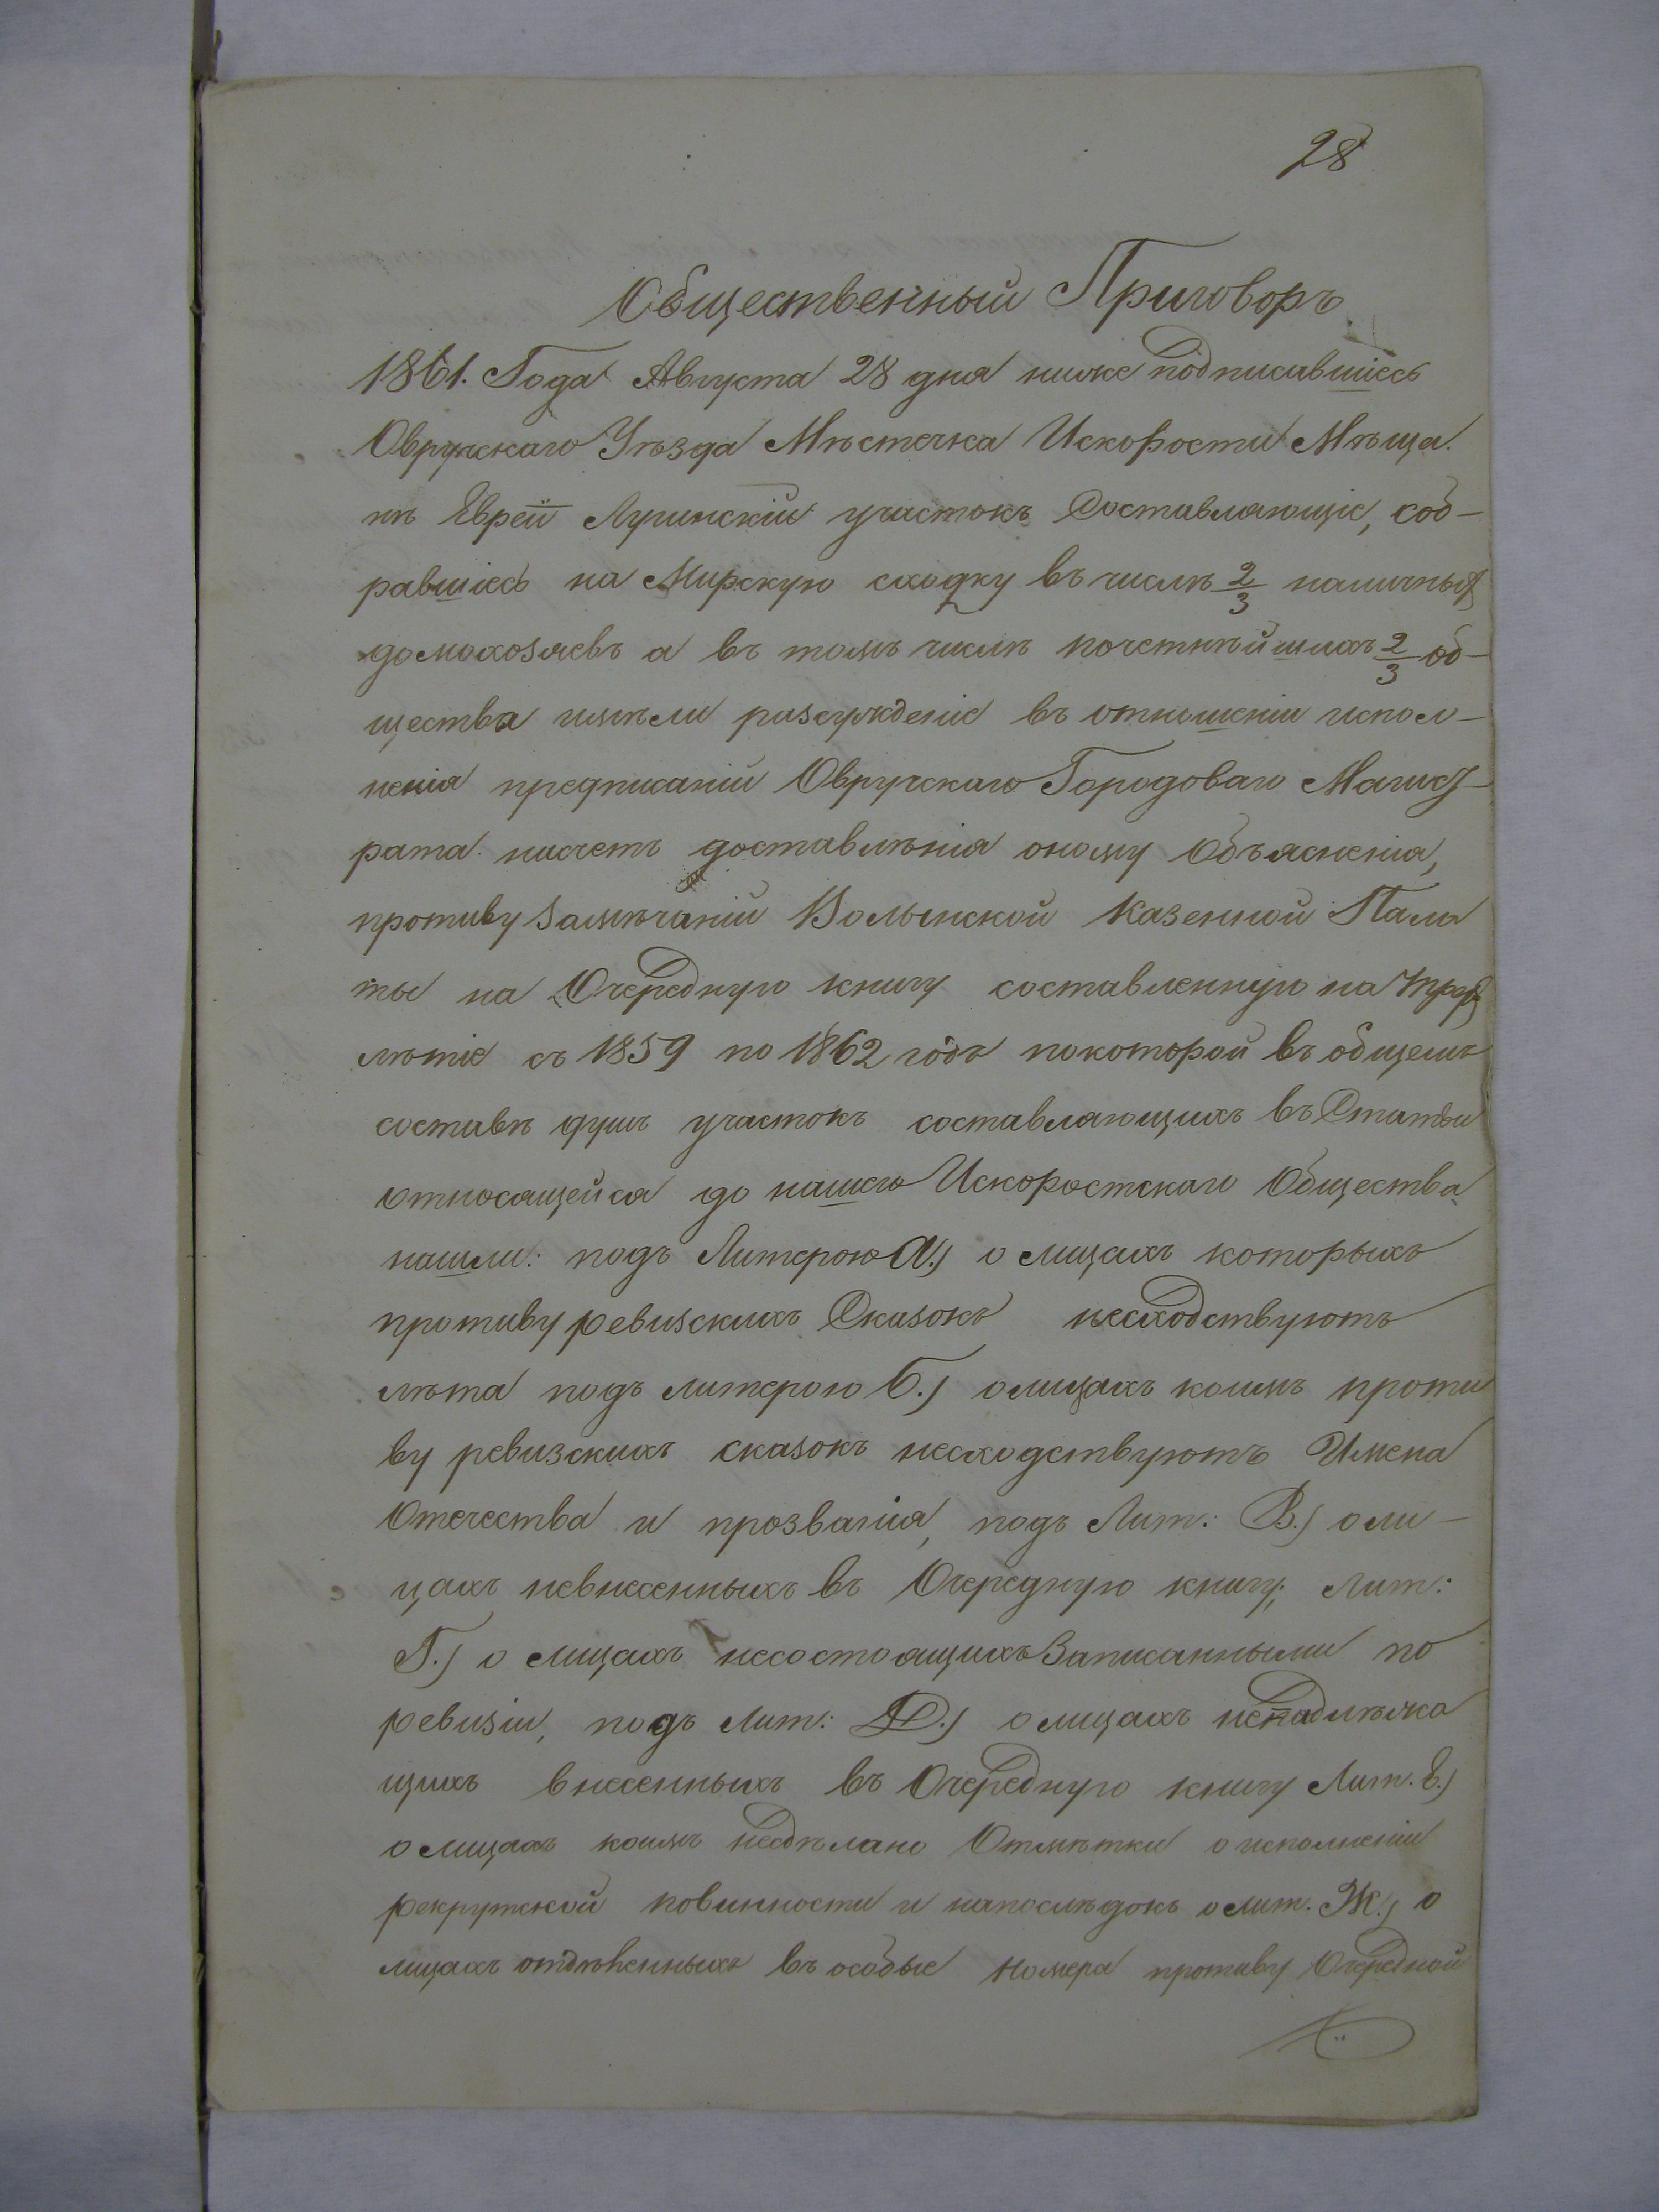 28
Общественный Приговоръ
1861. Года Августа 28 дня ниже подписавшiесь
Овручскаго Уѣзда Мѣстечка Искорости Мѣща.
нѣ Евреи Лугинскiй участокъ Составляющiе, соб-
равшiесь на Мирскую сходку въ числѣ 2/3 наличныхъ
домохозяевъ а въ томъ числѣ почетнѣйшихъ 2/3 об-
щества имѣли разсужденiе въ отношенiи испол-
ненiя предписанiй Овручскаго Городоваго Магист-
рата насчетъ доставлѣнiя оному Объясненiя,
противу Замѣчанiй Волынской Казенной Пала
ты на Очередную книгу составленную на трех
лѣтiе съ 1859 по 1862 годъ покоторой въ общемъ
составѣ душъ участокъ составляющихъ въ Статьи
относящейся до нашего Искоростскаго Общества
нашли: подъ Литерою А.) о лицахъ которыхъ
противу ревизскихъ Сказокъ несходствуютъ
лѣта подъ литерою Б.) олицахъ коимъ проти
ву ревизскихъ сказокъ несходствуютъ Имена
Отечества и прозванiя, подъ Лит: В.) оли-
цахъ невнесенныхъ въ Очередную книгу; Лит:
Г.) о лицахъ несостоящихъ Записанными по
ревизiи, подъ Лит: Д.) олицахъ ненадлѣжа
щихъ внесенныхъ въ Очередную книгу Лит. Е.)
о лицахъ коимъ несдѣлано Отмѣтки о исполненiи
рекрутской повинности и напослѣдокъ олит. Ж.) о
лицахъ отдѣленныхъ въ особые номера противу Очередной